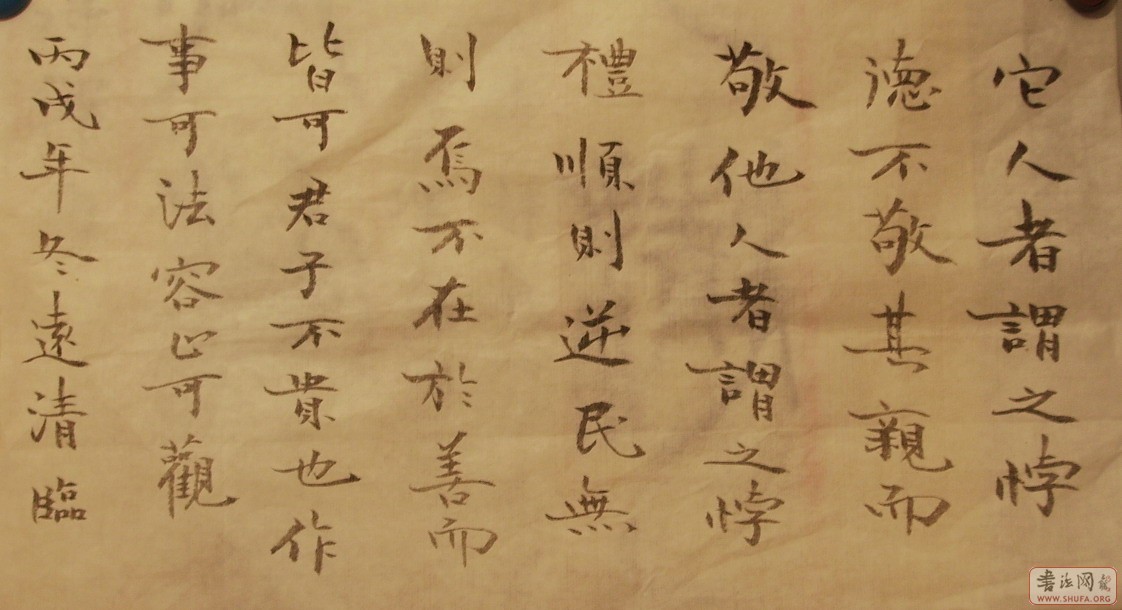 它人者謂之悖
德不敬其親而
敬他人者謂之悖
禮順則逆民無
則焉不在於善而
皆可君子不貴也作
事可法容止可觀
丙戌年冬遠清臨
書法网
WWW.SHUFA.ORG